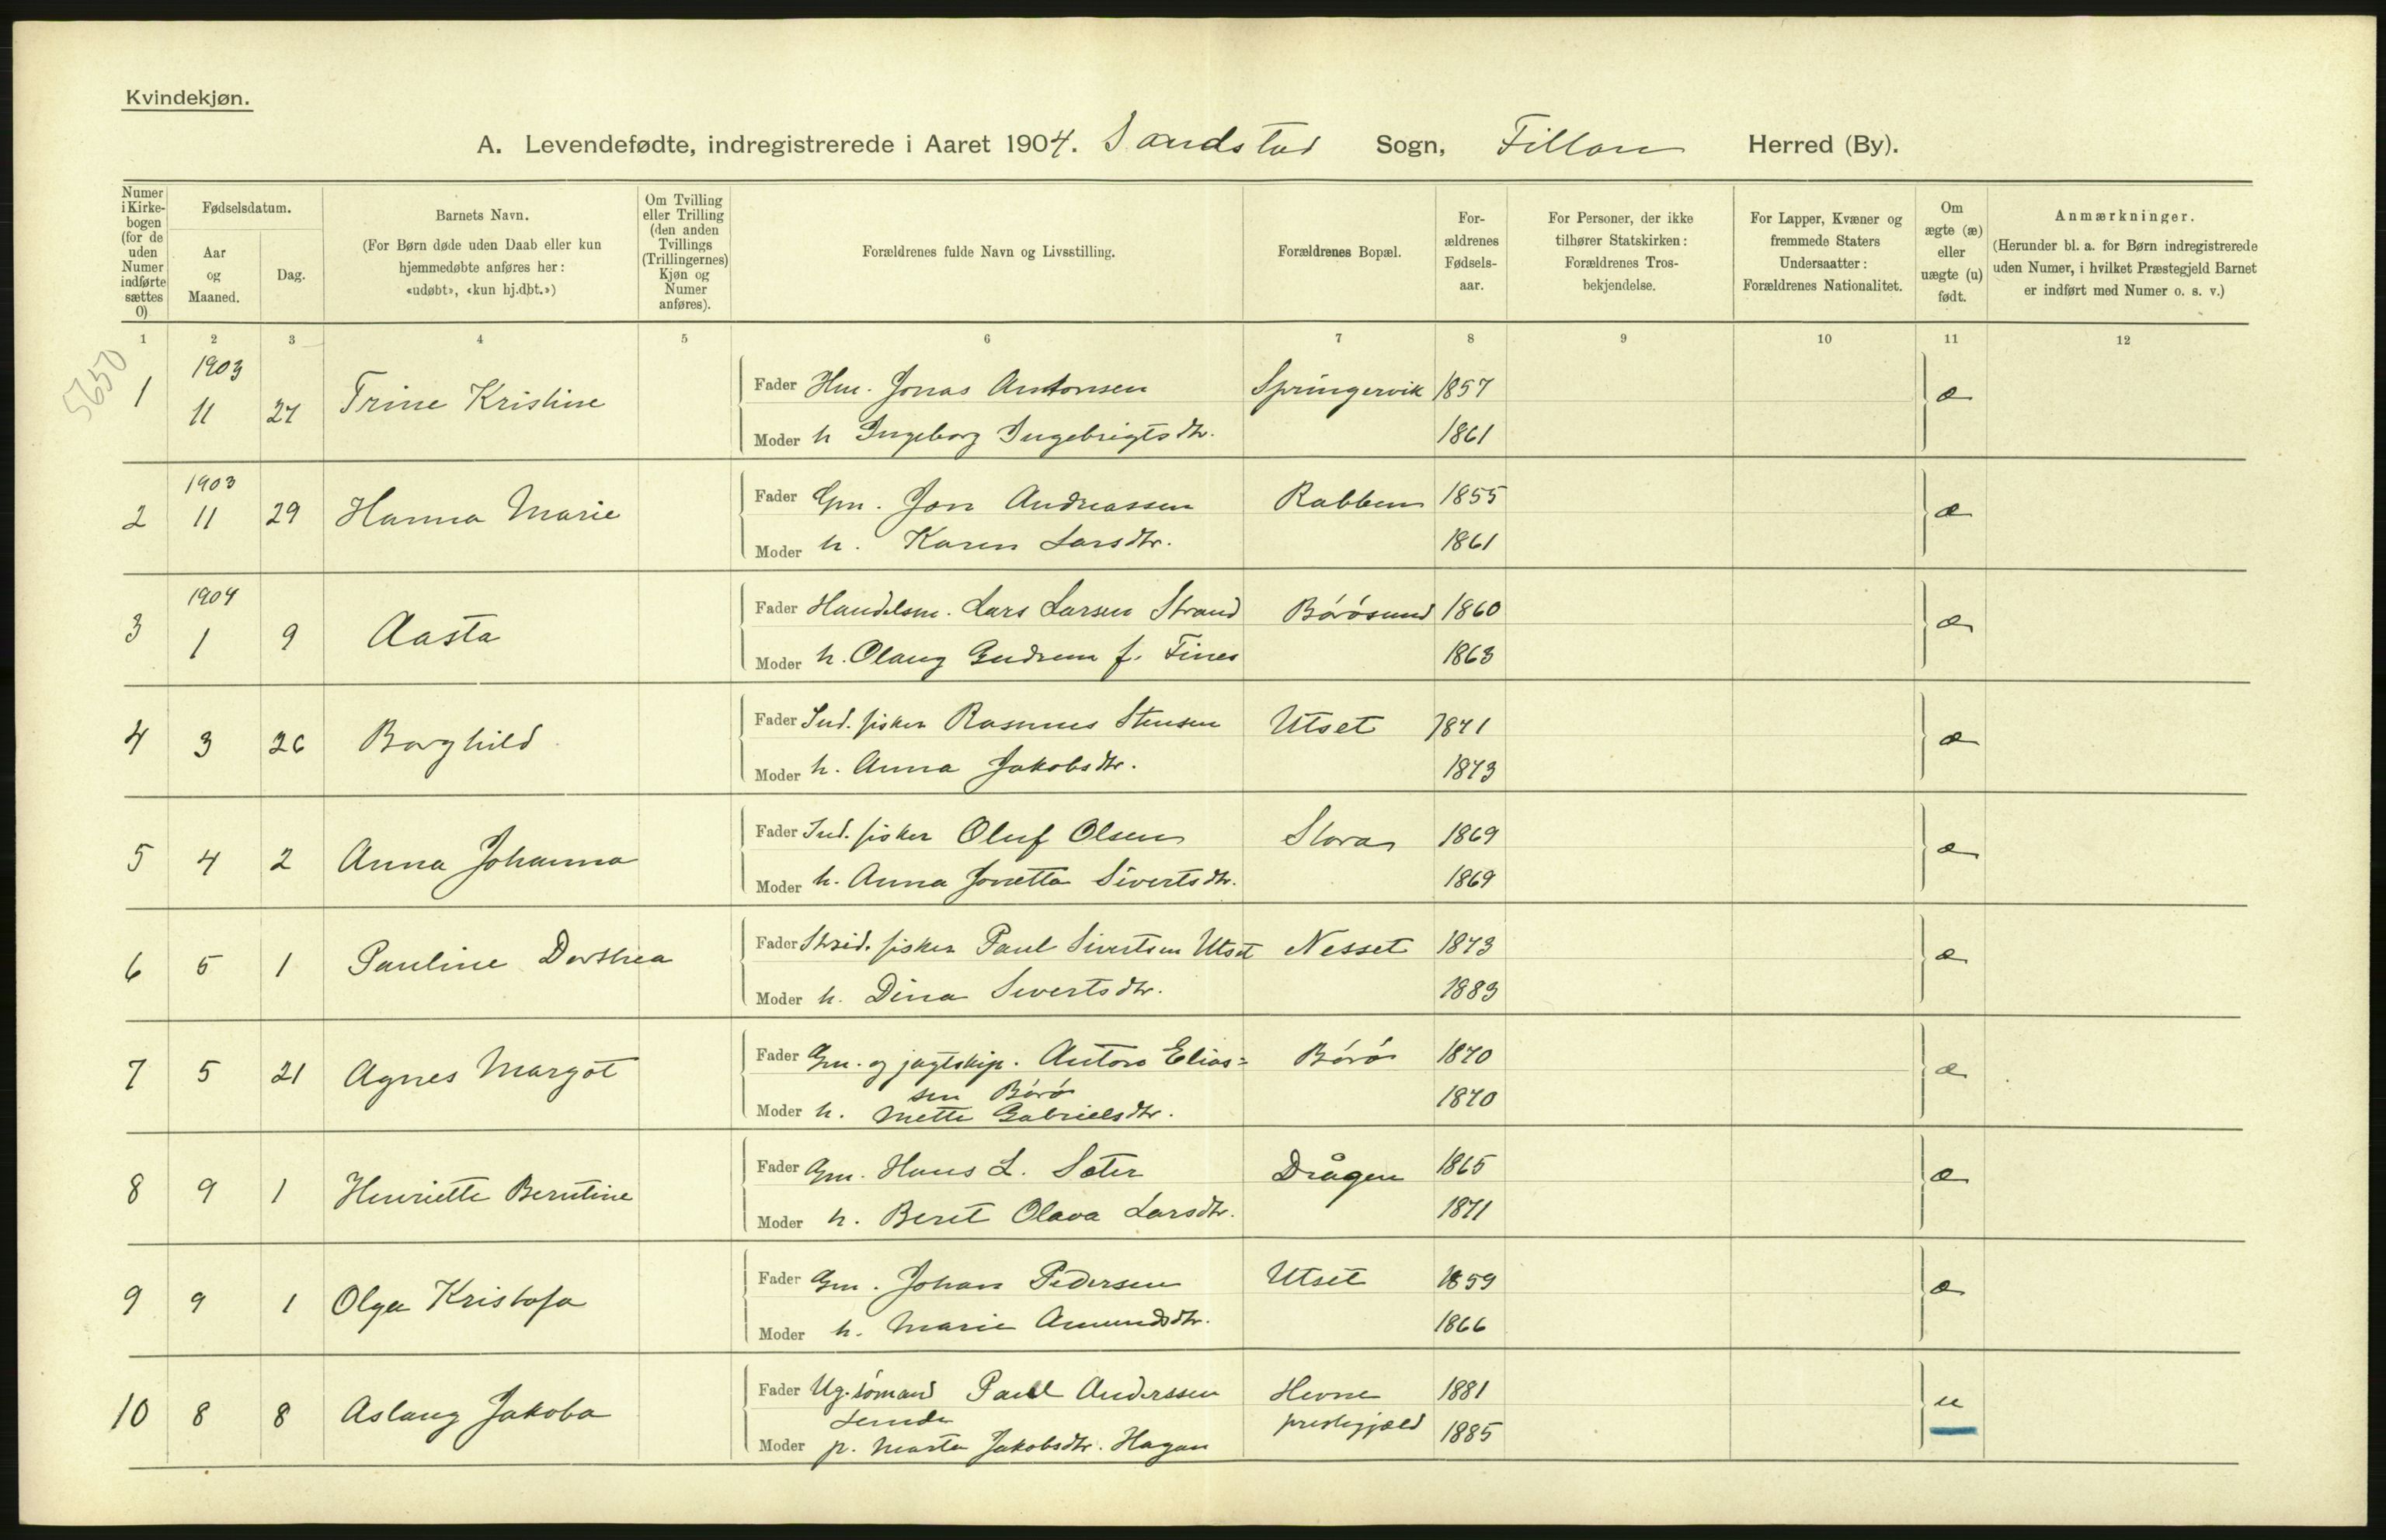 Kvindekjøn.
A. Levendefødte, indregistrerede i Aaret 1904. Sandstad Sogn, Fillan Herred (By).
Numer i Kirke-bogen (for de uden Numer indførte sættes 0)
Fødselsdatum.
Aar og Maaned.
Dag.
Barnets Navn.
(For Børn døde uden Daab eller kun hjemmedøbte anføres her: «udøbt», «kun hj.dbt.»)
Om Tvilling eller Trilling (den anden Tvillings (Trillingernes) Kjøn og Numer anføres).
Forældrenes fulde Navn og Livsstilling.
Forældrenes Bopæl.
For-ældrenes Fødsels-aar.
For Personer, der ikke tilhører Statskirken: Forældrenes Tros-bekjendelse.
For Lapper, Kvæner og fremmede Staters Undersaatter: Forældrenes Nationalitet.
Om ægte (æ) eller uægte (u) født.
Anmærkninger.
(Herunder bl. a. for Børn indregistrerede uden Numer, i hvilket Præstegjeld Barnet er indført med Numer o. s. v.)
1 2 3 4 5 6 7 8 9 10 11 12
5650
1 1903 11 27 Trine Kristine Fader Hm. Jonas Antonsen Springervik 1857 æ
Moder h Ingeborg Ingebrigtsdtr. 1861
2 1903 11 29 Hanna Marie Fader Gm. Jon Andreassen Rabben 1855 æ
Moder h. Karen Larsdtr. 1861
3 1904 1 9 Aasta Fader Handelsm. Lars Larsen Strand Börösund 1860 æ
Moder h. Olaug Gudrun f. Fines 1863
4 3 26 Borghild Fader Ind. fisker Rasmus Stensen Utset 1871 æ
Moder h. Anna Jakobsdtr. 1873
5 4 2 Anna Johanna Fader Ind. fisker Oluf Olsen Stora 1869 æ
Moder h. Anna Jonetta Sivertsdtr. 1869
6 5 1 Pauline Dorthea Fader Strid. fisker Paul Sivertsen Utset Nesset 1873 æ
Moder h. Dina Sivertsdtr. 1883
7 5 21 Agnes Margot Fader Gm. og jagtskip. Anton Elias= Börö 1870 æ
sen Börö
Moder h. Mette Gabrielsdtr. 1870
8 9 1 Henriette Berntine Fader Gm. Hans L. Sæter Drågen 1865 æ
Moder h. Beret Olava Larsdtr. 1871
9 9 1 Olga Kristofa Fader Gm. Johan Pedersen Utset 1859 æ
Moder h. Marie Amundsdtr. 1866
10 8 8 Aslaug Jakoba Fader Ug. sömand Paul Anderssen Hevne 1881 u
prestegjæld
Moder p. Marta Jakobsdtr. Hagan 1885